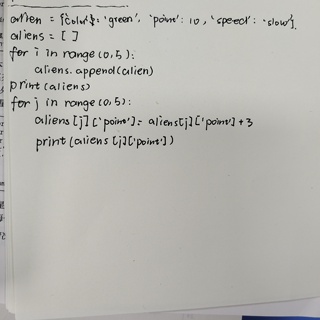 alien = {'color': 'green', 'point': 10, 'speed': 'slow'}.
aliens = [ ]
for i in range(0,5):
    aliens.append(alien)
print(aliens)
for j in range(0,5):
    aliens[j]['point'] = aliens[j]['point'] + 3
    print(aliens[j]['point'])